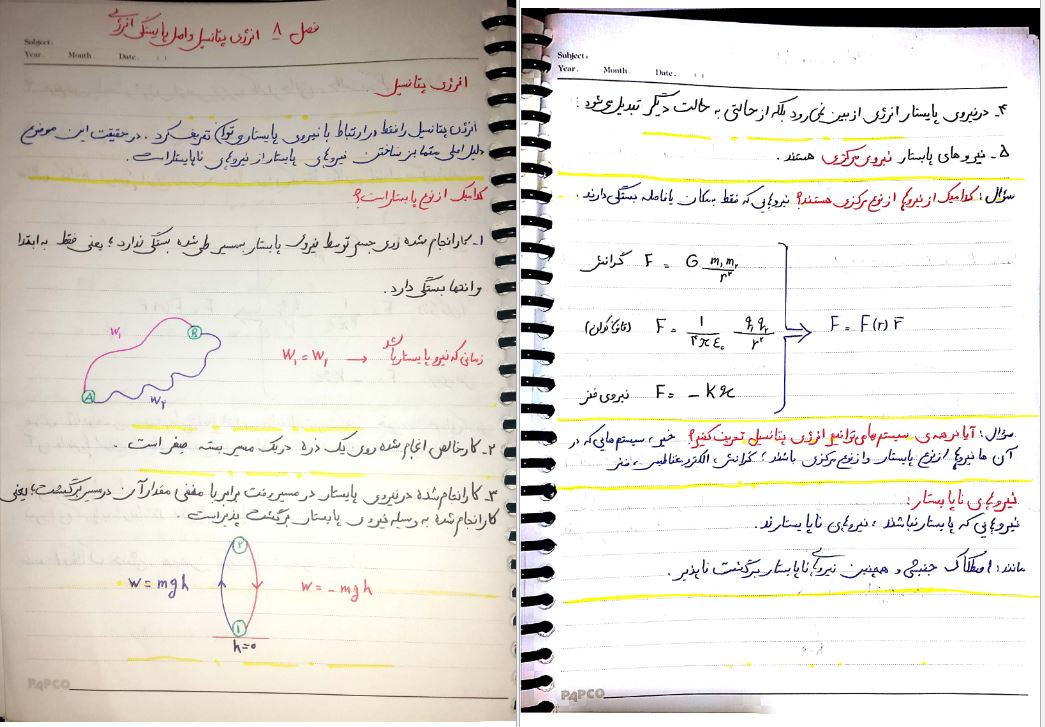 فصل ۸ انرژی پتانسیل و اصل پایستگی انرژی
Subject:
Year. Month. Date. ( )
انرژی پتانسیل:
انرژی پتانسیل را فقط در ارتباط با نیروی پایستار می‌توان تعریف کرد. در حقیقت این موضوع
دلیل اصلی متمایز ساختن نیروهای پایستار از نیروهای ناپایستار است.
کدامیک از نوع پایستار است؟
۱- کار انجام شده روی جسم توسط نیروی پایستار به مسیر طی شده بستگی ندارد؛ یعنی فقط به ابتدا
و انتها بستگی دارد.
W₁
B
A
W۲
W₁ = W۲ → زمانی که نیرو پایستار باشد
۲- کار خالص انجام شده روی یک ذره در یک مسیر بسته صفر است.
۳- کار انجام شده در نیروی پایستار در مسیر رفت برابر با منفی مقدار آن در مسیر برگشت؛ یعنی
کار انجام شده به وسیله نیروی پایستار برگشت پذیر است.
۲
W = mgh
W = -mgh
۱
h=0
PAPCO
Subject:
Year. Month. Date. ( )
۴- در نیروی پایستار انرژی از بین نمی‌رود بلکه از حالتی به حالت دیگر تبدیل می‌شود:
۵- نیروهای پایستار نیروی مرکزی هستند.
سؤال: کدامیک از نیروها از نوع مرکزی هستند؟ نیروهایی که فقط به مکان یا فاصله بستگی دارند.
گرانش F = G m₁m۲/r²
(قانون کولن) F = 1/۴πε₀ q₁q۲/r²
F = F(r) r̄
نیروی فنر F = -Kx
سؤال: آیا در همه‌ی سیستم‌ها می‌توانیم انرژی پتانسیل تعریف کنیم؟ خیر، سیستم‌هایی که در
آن‌ها نیروها از نوع پایستار و از نوع مرکزی باشند؛ گرانش، الکترومغناطیس، فنر
نیروهای ناپایستار:
نیروهایی که پایستار نباشند، نیروهای ناپایستارند.
مانند: اصطکاک جنبشی و همچنین نیروهای ناپایستار برگشت ناپذیر.
PAPCO